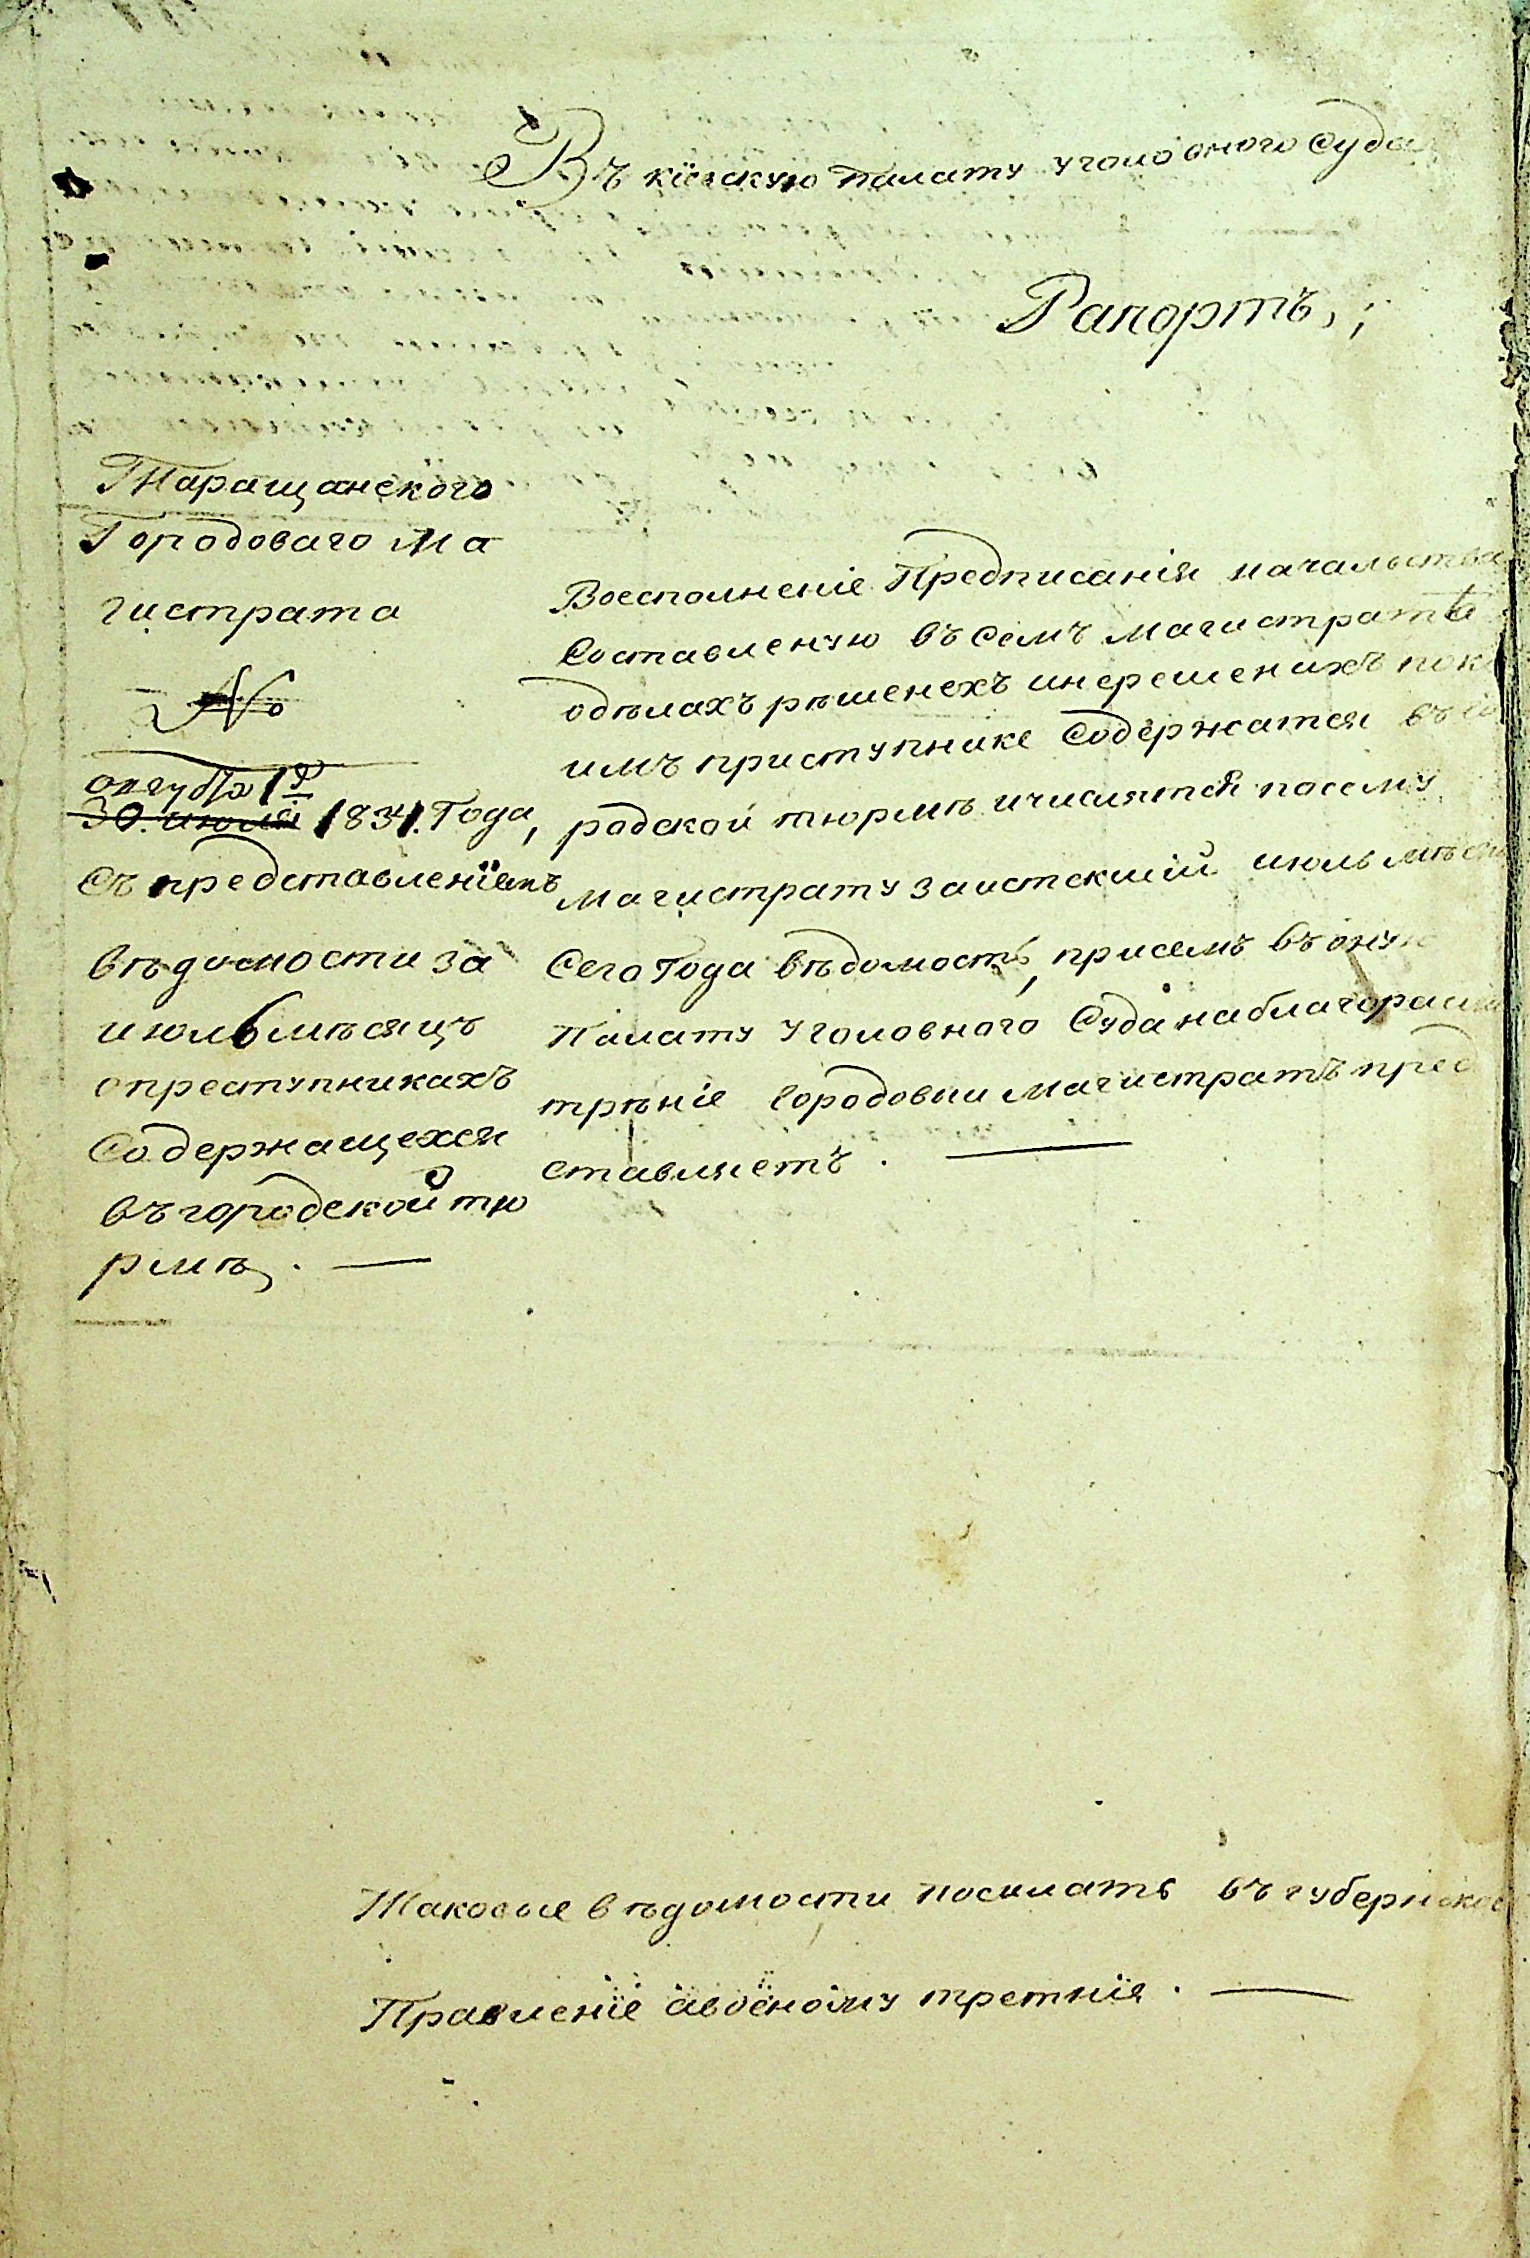 Въ кіевскую палату уголовного Суда
Рапортъ,
Таращанского
Городоваго Ма
гистрата
№
августа 1
30. июля 1834. Года,
Съ представленіемъ
вѣдомости за
июль мѣсяцъ
о преступникахъ
Содержащехся
въ городской тю
рмѣ. —
Воесполнение Предписанія начальства
Составленую въ семъ магистратѣ
одѣлахъ рѣшенехъ инерешенихъ пока
имъ приступнике Содержатся въ го
родской тюрмѣ ичислятся посему
магистрату заистекшій июль мѣсяц
Сего Года вѣдомость, присемъ въ оную
Палату уголовного Суда наблагорасмо
трѣніе Городовыи магистратъ пред
ставляетъ. —
Таковые вѣдомости посилать въ губернское
Правленіе
третнія. —